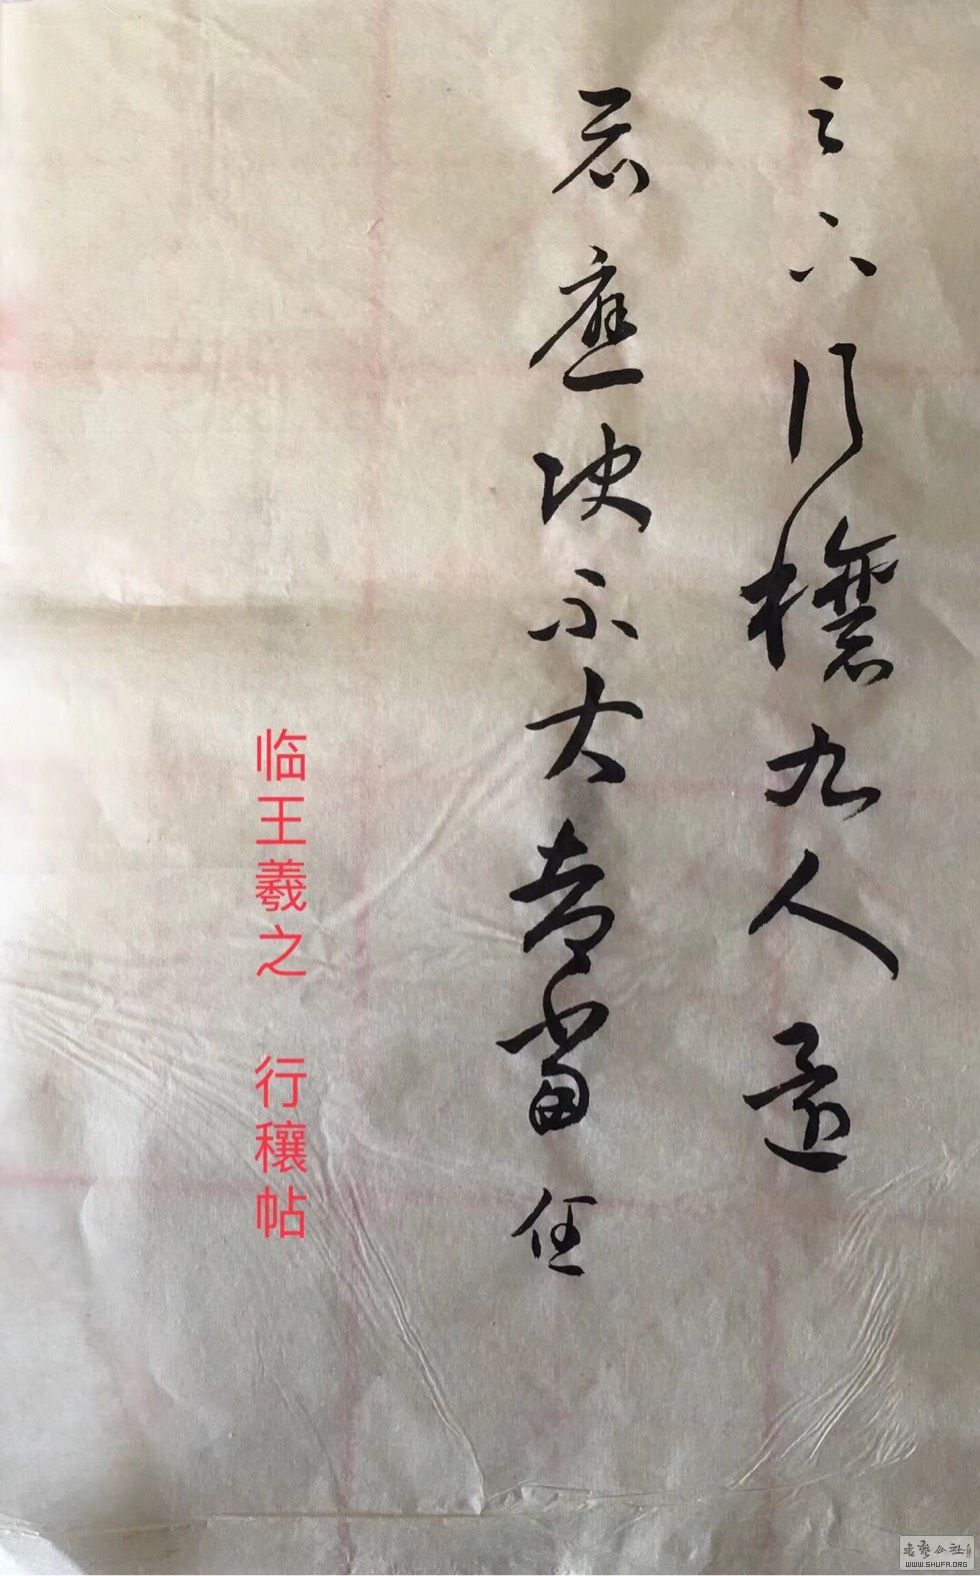 足下行穰九人還
示應決不大都當佳
临王羲之 行穰帖
书艺公社
WWW.SHUFA.ORG